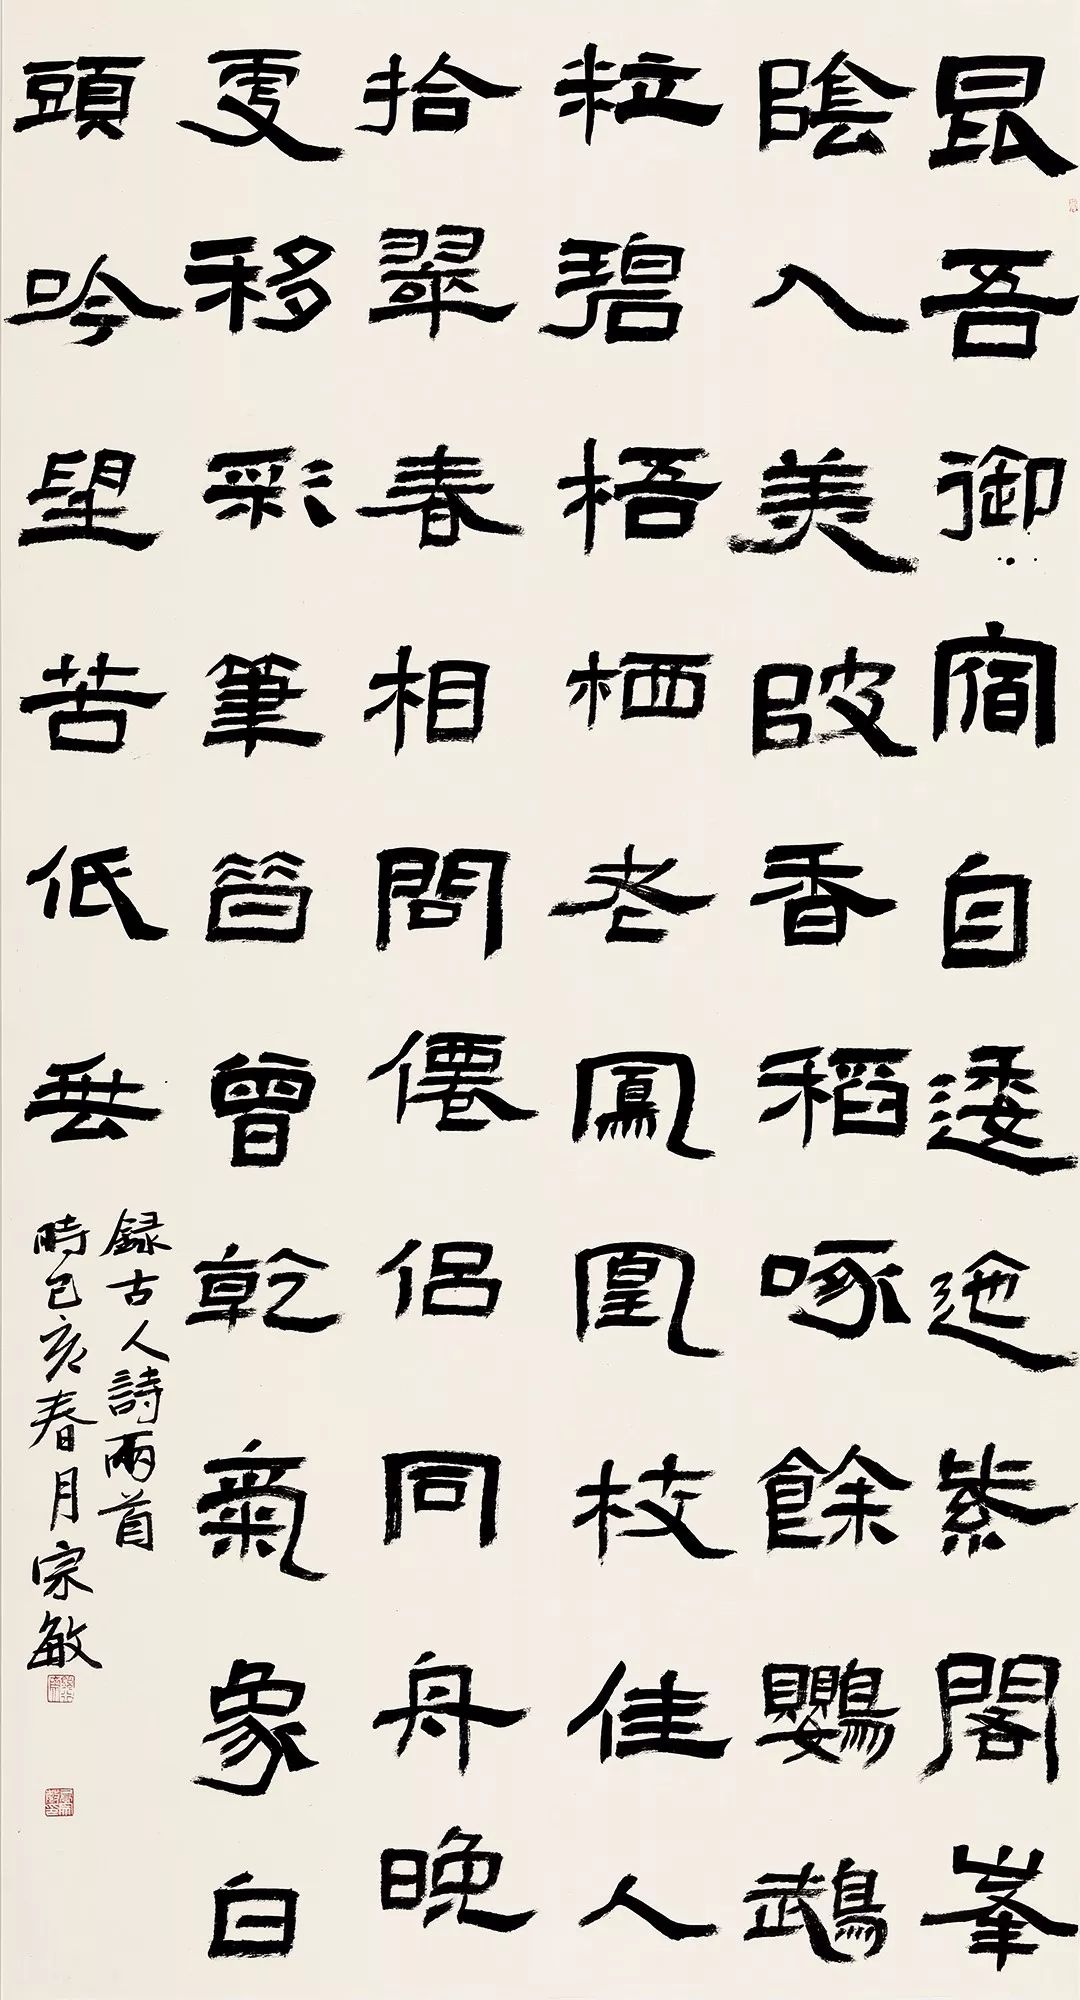 昆吾御宿自逶迤紫閣峯
陰入美陂香稻啄餘鸚鵡
粒碧梧栖老鳳凰枝佳人
拾翠春相問僊侶同舟晚
更移彩筆昔曾乾氣象白
頭吟望苦低垂
録古人詩兩首
時己亥春月宗敏